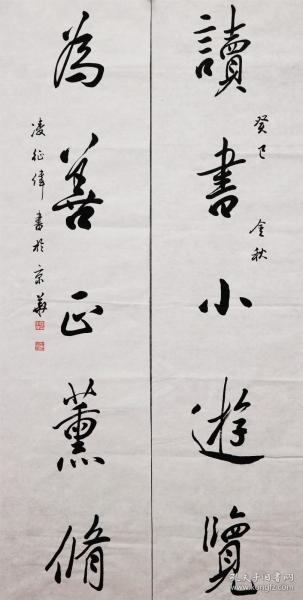 讀書小遊覽
癸巳 金秋
為善正薰脩
凌征偉書於京華
孔夫子旧书网